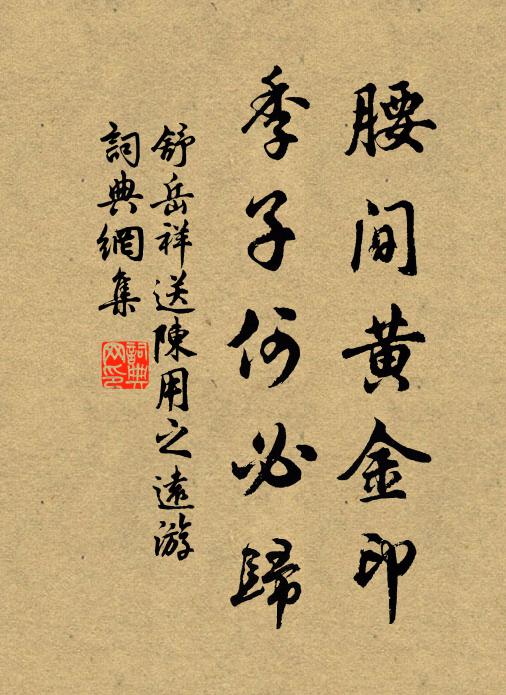 腰間黄金印
季子何必歸
舒岳祥送陳用之遠游
詞典網集
詞典网印